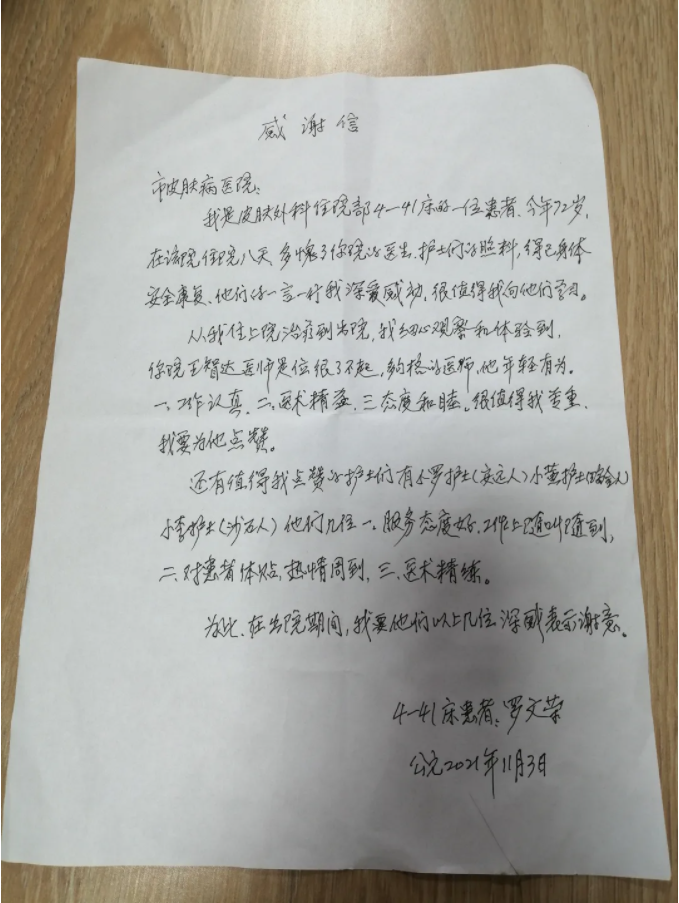 感谢信
市皮肤病医院：
我是皮肤外科住院部4-41床的一位患者、今年72岁，
在该院住院八天，多愧了你院的医生、护士们的照料，得已身体
安全康复、他们的一言一行我深爱感动，很值得我向他们学习。
从我住上院治疗到出院，我细心观察和体验到，
你院王智达医师是位很了不起，够格的医师，他年轻有为。
一、工作认真、二、医术精益、三、态度和睦。很值得我尊重、
我要为他点赞。
还有值得我点赞的护士们有小罗护士（安远人）小黄护士（瑞金人）
小李护士（沙石人）他们几位一、服务态度好、工作上随叫随到，
二、对患者体贴，热情周到，三、医术精练。
为此、在出院期间，我要他们以上几位深感表示谢意。
4-41床患者：罗文荣
公元2021年11月3日